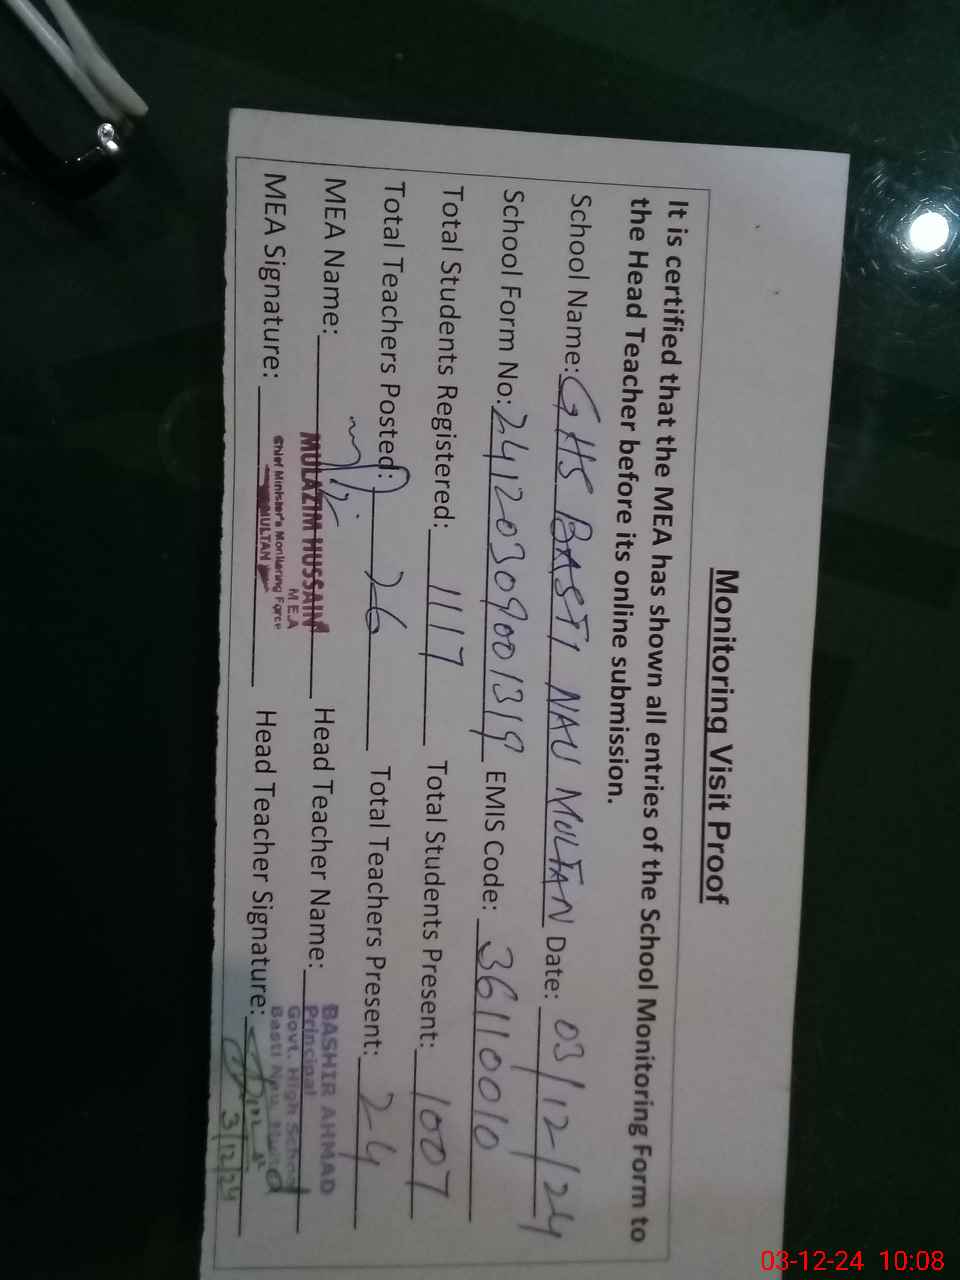 Monitoring Visit Proof
It is certified that the MEA has shown all entries of the School Monitoring Form to
the Head Teacher before its online submission.
School Name: GHS BASTI NAU MULTAN Date: 03/12/24
School Form No: 24120309001319 EMIS Code: 36110010
Total Students Registered: 1117 Total Students Present: 1007
Total Teachers Posted: 26 Total Teachers Present: 24
MEA Name: MULAZIM HUSSAIN Head Teacher Name: BASHIR AHMAD
M E A Principal
Chief Minister's Monitoring Force Govt. High School
MULTAN Basti Nau
MEA Signature: Head Teacher Signature:
3/12/24
03-12-24 10:08